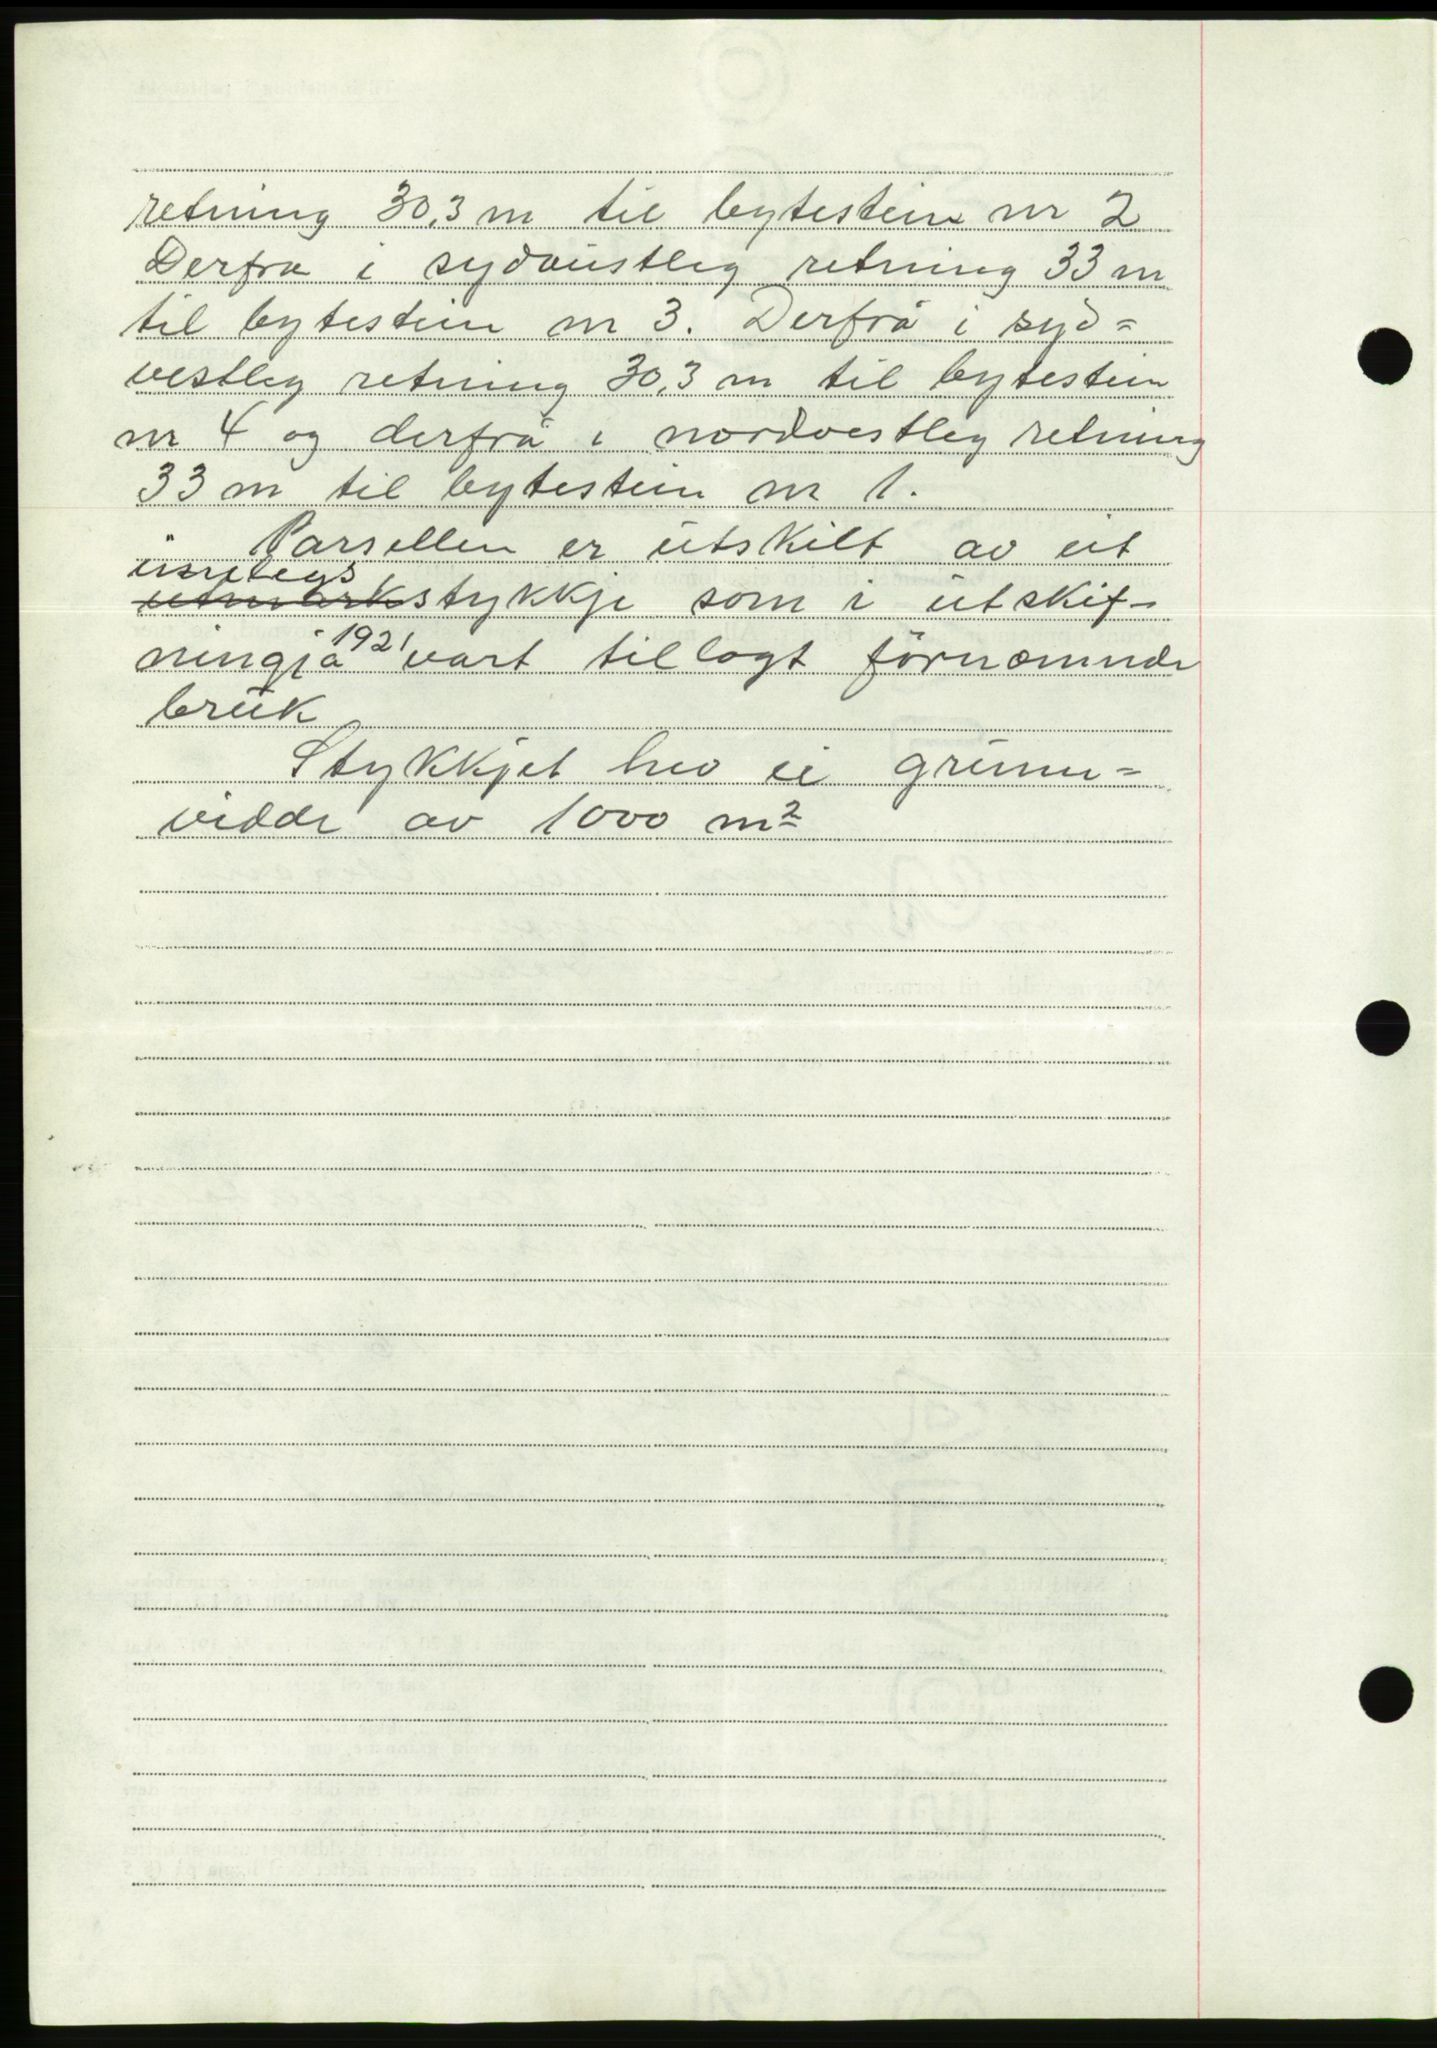 retning 30,3 m til bytestein nr 2
Derfra i sydaustleg retning 33 m
til bytestein nr 3. Derfrå i syd=
vestleg retning 30,3 m til bytestein
nr 4 og derfrå i nordvestleg retning
33 m til bytestein nr 1.
Parsellen er utskilt av eit
utmarkstykkje som i utskif-
ningja 1921 vart tillagt førnæmnde
bruk
Stykkjet hev ei grunn=
vidde av 1000 m²